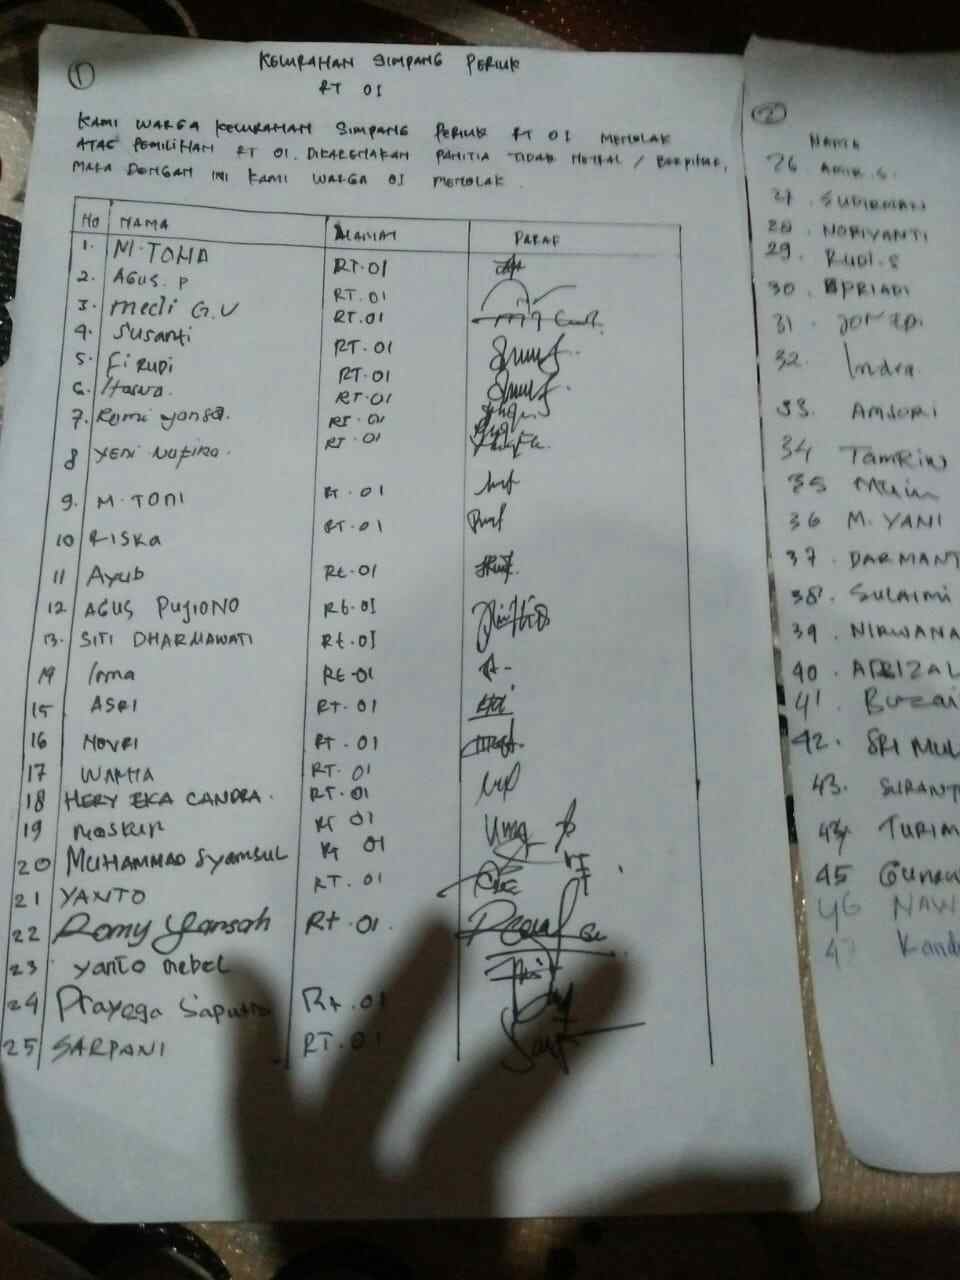 1
KELURAHAN SIMPANG PERIUK
RT 01
KAMI WARGA KELURAHAN SIMPANG PERIUK RT 01 MENOLAK
ATAS PEMILIHAN RT 01. DIKARENAKAN PANITIA TIDAK NETRAL / BERPIHAK,
MAKA DENGAN INI KAMI WARGA 01 MENOLAK.
NO NAMA ALAMAT PARAF
1. M. TOHA RT.01
2. AGUS. P RT.01
3. medi G.U RT.01
4. Susanti RT.01
5. FIRUDI RT.01
6. RT.01
7. Romi yansa. RT.01
8 YENI RT.01
9. M. TONI RT.01
10 RISKA RT.01
11 Ayub Rt.01
12 AGUS PUJIONO Rt.01
13. SITI DHARMAWATI Rt.01
14 Irma Rt-01
15 ASRI RT.01
16 NOVRI RT.01
17 WANHA RT.01
18 HERY EKA CANDRA. RT.01
19 maskur RT 01
20 MUHAMMAD Syamsul RT 01
21 YANTO RT.01
22 Romy Yansah Rt.01.
23 yanto mebel
24 Prayoga Saputra Rt.01
25 SARPANI RT.01
2
NAMA
26 AMIR.S.
27. SUDIRMAN
28 NORIYANTI
29. RUDI.S
30 APRIADI
31.
32. Indra
33. AMSORI
34 TAMRIN
35 Muin
36 M. YANI
37. DARMANT
38. SULAIMI
39. NIRWANA
40. AFRIZAL
41. Buzai
42. SRI MUL
43. SURANT
44 TURIM
45 GUNAW
46 NAW
47